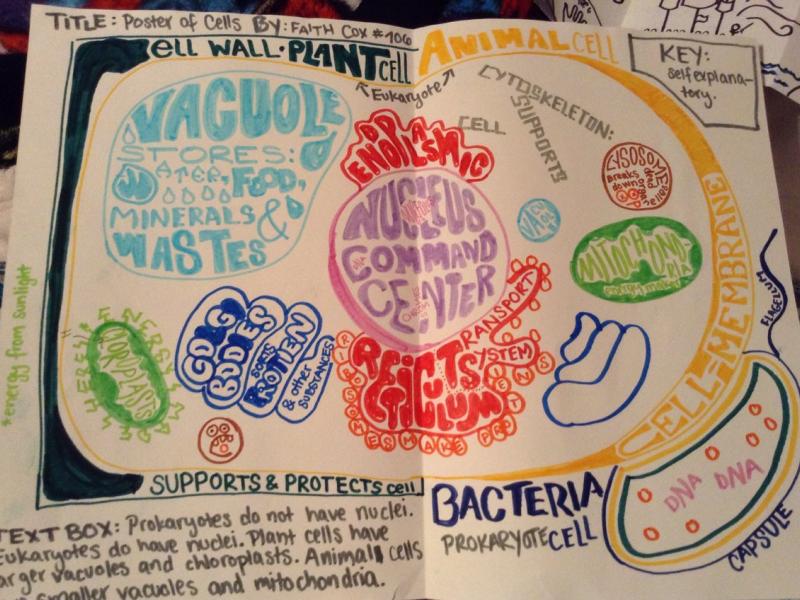 TITLE: Poster of Cells BY: FAITH COX #106
CELL WALL • PLANT CELL
ANIMAL CELL
Eukaryote
KEY:
self explana-
tory.
CYTOSKELETON:
SUPPORTS
CELL
VACUOLE
STORES:
WATER, FOOD,
MINERALS &
WASTES
ENDOPLASMIC
NUCLEUS
COMMAND
CENTER
DNA
LYSOSOME
breaks
down
MITOCHOND-
RIA
CELL-MEMBRANE
FLAGELLUM
*energy from sunlight
GOLGI
BODIES
SORTS
PROTIEN
& other
SUBSTANCES
TRANSPORT
SYSTEM
RETICULUM
SUPPORTS & PROTECTS cell
BACTERIA
PROKARYOTE CELL
DNA DNA
CAPSULE
TEXT BOX: Prokaryotes do not have nuclei.
Eukaryotes do have nuclei. Plant cells have
larger vacuoles and chloroplasts. Animal cells
smaller vacuoles and mitochondria.